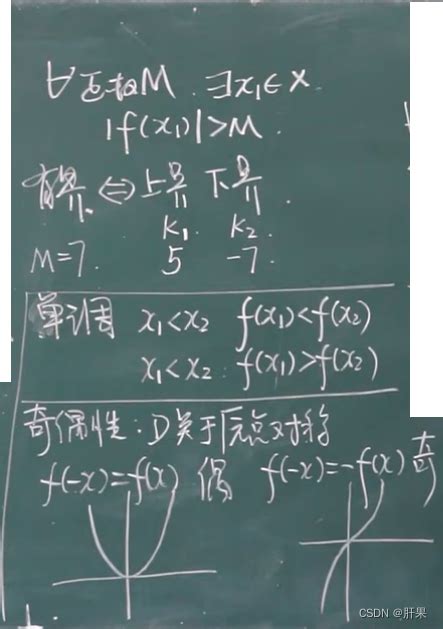 ∀正数M. ∃x₁∈X.
|f(x₁)|>M.
有界⇔上界 下界.
K₁ K₂.
M=7. 5 -7.
单调 x₁<x₂ f(x₁)<f(x₂)
x₁<x₂. f(x₁)>f(x₂)
奇偶性:D关于原点对称
f(-x)=f(x) 偶 f(-x)=-f(x) 奇
CSDN @肝果